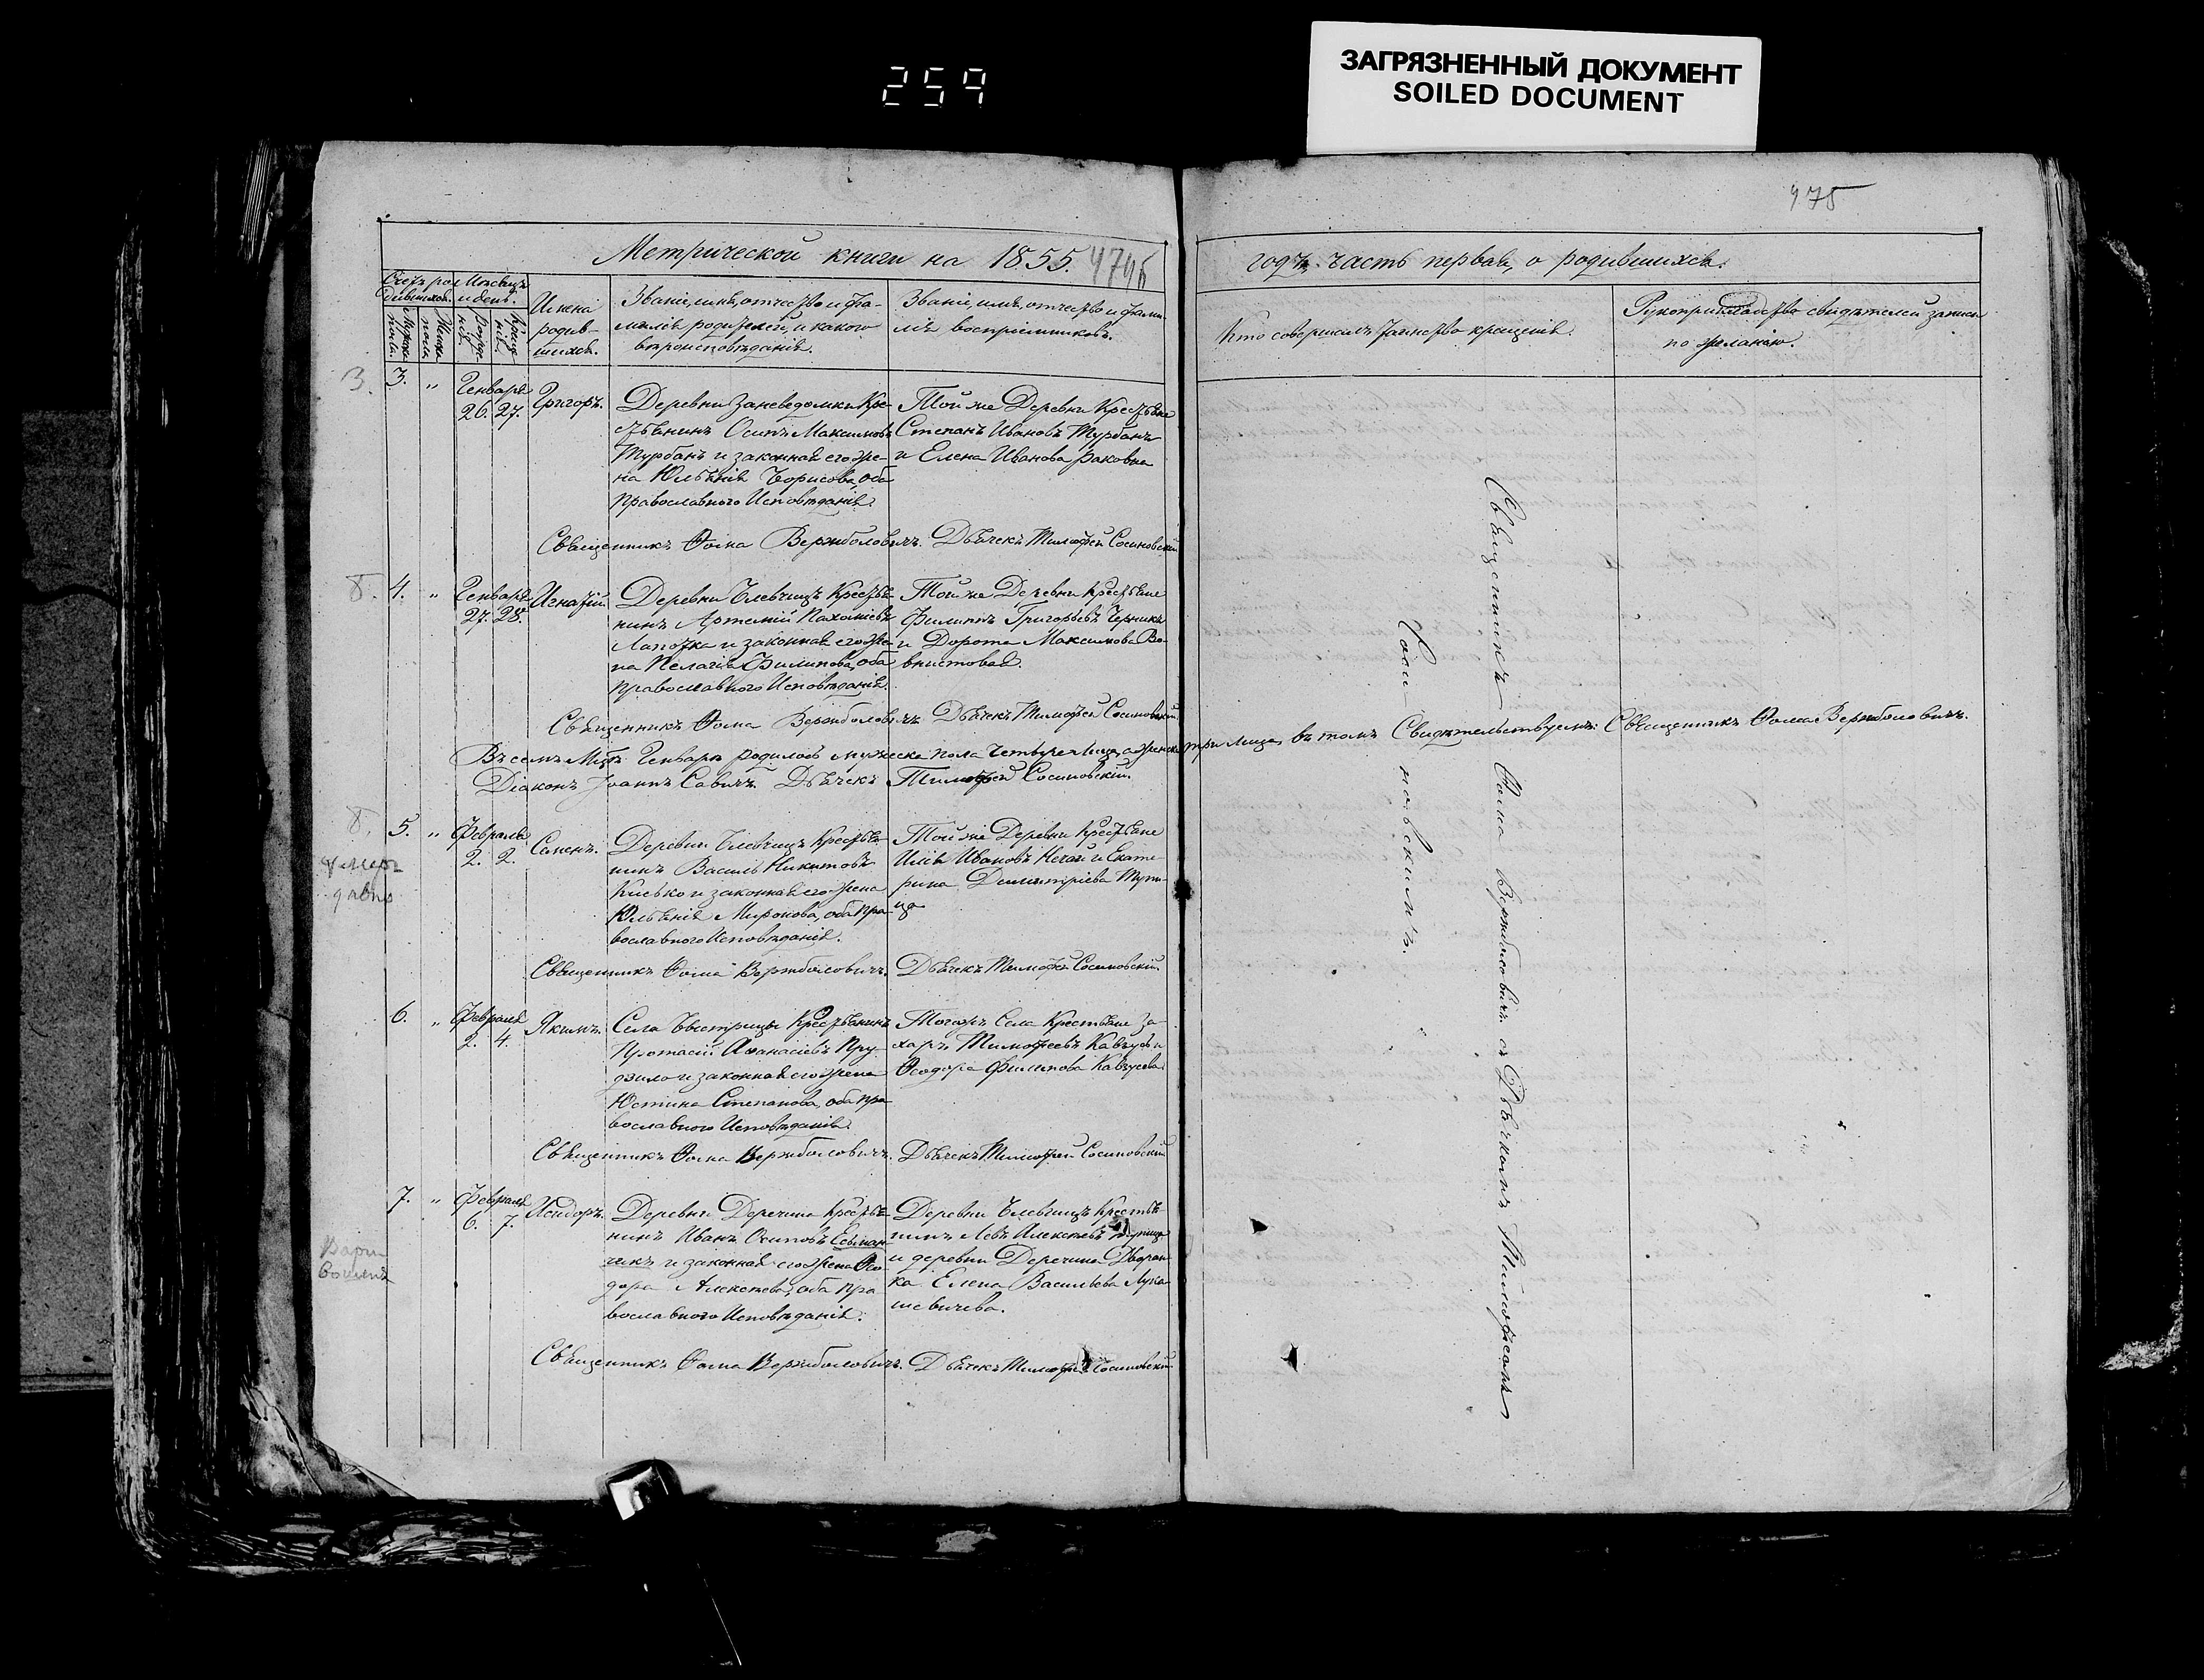 259
ЗАГРЯЗНЕННЫЙ ДОКУМЕНТ
SOILED DOCUMENT
475
Метрической книги на 1855.
годъ, часть первая, о родившихся.
Имена
родив-
шихся.
Званіе, имя, отчество и фа-
милія родителей, и какого
вѣроисповѣданія.
Званіе, имя, отчество и фами-
лія воспріемниковъ.
Кто совершалъ таинство крещенія.
Рукоприкладство свидѣтелей записи
по желанію.
3.
3.
"
Генваря
26. 27.
Григоръ.
Деревни Заневедомки Кре-
стьянинъ Осипъ Максимовъ
Турбанъ и законная его же-
на Юльянія Борисова, оба
Православного Исповѣданія.
Той же Деревни Крестьяне
Степанъ Ивановъ Турбанъ
и Елена Иванова
Священникъ Ѳома Вержболовичъ. Дьячекъ Тимофей Сосиновскій
4.
"
Генваря
27. 28.
Игнатій
Деревни Блевчицъ Крестья-
нинъ Артемій Пахоміевъ
Лапотка и законная его же-
на Пелагія Филипова, оба
Православного Исповѣданія.
Той же Деревни Крестьяне
Филиппъ Григорьевъ Черникъ
и Дорота Максимова
Священникъ Ѳома Вержболовичъ Дьячекъ Тимофей Сосиновскій
Въ семъ Генварѣ родилось мужеска пола четыре лица, а женска три лица, въ томъ Свидѣтельствуемъ: Священникъ Ѳома Вержболовичъ.
Діаконъ Іоаннъ Савичъ. Дьячекъ Тимофей Сосиновскій.
5.
"
Февраля
2. 2.
Семенъ.
умер
давно
Деревни Блевчицъ Крестья-
нинъ Василь Никитовъ
и законная его жена
Юльянія Миронова, оба Пра-
вославного Исповѣданія.
Той же Деревни Крестьяне
Илія Ивановъ Нечай и Екате-
рина Димитріева
Священникъ Ѳома Вержболовичъ. Дьячекъ Тимофей Сосиновскій.
6.
"
Февраля
2. 4.
Якимъ.
Села Быстрицы Крестьянинъ
Протасій Аѳанасіевъ Пру-
дило и законная его жена
Юстина Степанова, оба пра-
вославного Исповѣданія.
Тогожъ Села Крестьяне За-
харъ Тимофеевъ
Ѳеодора Филипова
Священникъ Ѳома Вержболовичъ. Дьячекъ Тимофей Сосиновскій
7.
"
Февраля
6. 7.
Исидоръ.
Деревни Деречина Крестья-
нинъ Иванъ Осиповъ
и законная его жена Ѳео-
дора Алексѣева, оба пра-
вославного Исповѣданія.
Деревни Блевчицъ Крестья-
нинъ Левъ Алексѣевъ
и деревни Деречина Дворян-
ка Елена Васильева Лука-
шевичева.
Священникъ Ѳома Вержболовичъ. Дьячекъ Тимофей Сосиновскій
Священникъ Ѳома Вержболовичъ съ Дьячкомъ Тимофеемъ
Сосиновскимъ.